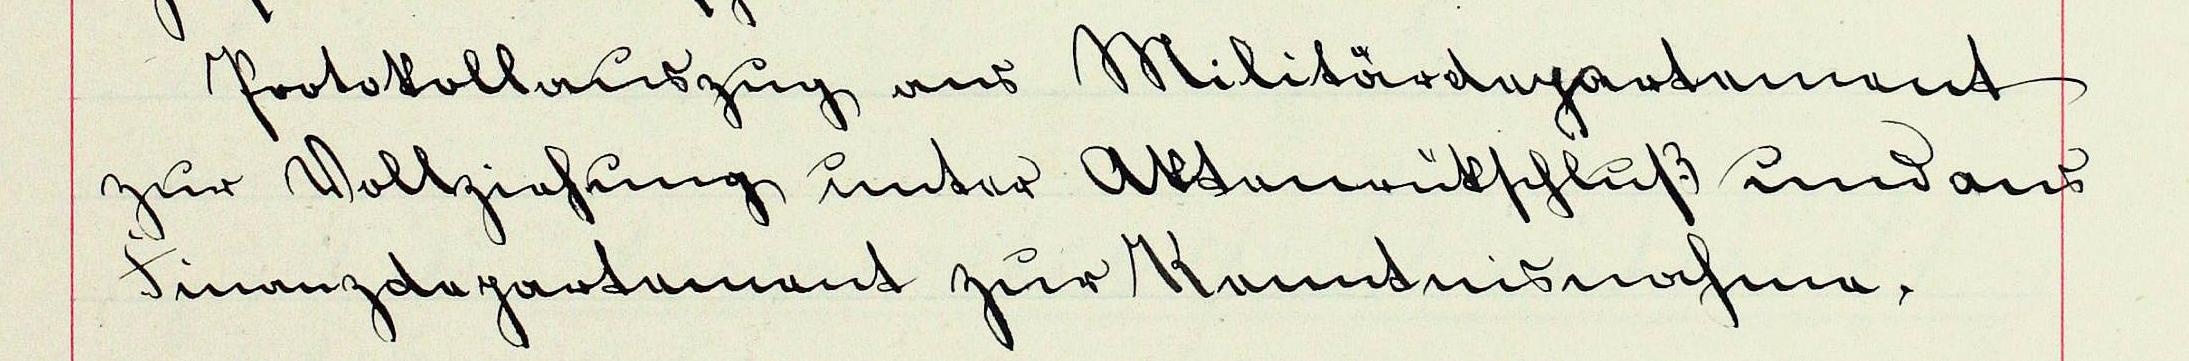 Protokollauszug ans Militärdepartement
zur Vollziehung unter Aktenrükschluß und ans
Finanzdepartement zur Kenntnisnahme.